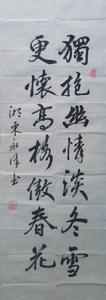 獨抱幽情淡冬雪
更懷高格傲春花
湖東
書